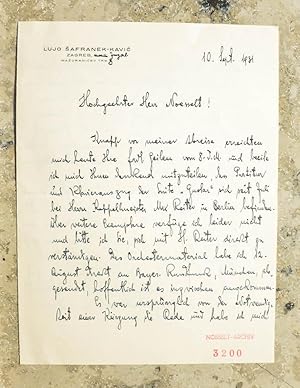 LUJO ŠAFRANEK-KAVIĆ
ZAGREB,
MAŽURANIĆEV TRG
10. Sept. 1931
Hochgeehrter Herr Noesselt!
Knapp vor meiner Abreise erreichten
mich heute Ihre frdl. Zeilen vom 8. d. M. und beeile
ich mich Ihnen mitzuteilen, dass Partitur
und Klavierauszug der Suite "Guslar" sich seit Juli
bei Herrn Kapellmeister Max Reiter in Berlin befinden.
Über weitere Exemplare verfüge ich leider nicht
und bitte ich Sie, sich mit H. Reiter direkt zu
verständigen. Das Orchestermaterial habe ich 12.
August direkt an Bayer. Rundfunk, München, ab-
gesendet, hoffentlich ist es inzwischen angekommen.
Es war ursprünglich von der
einer Kürzung die Rede und habe ich mich
NOESSELT-ARCHIV
3200